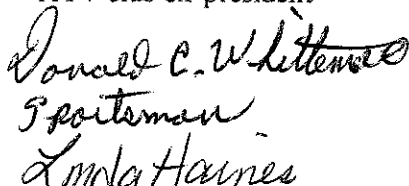 president
Donald C. Whittemore
Sportsman
Linda Haines